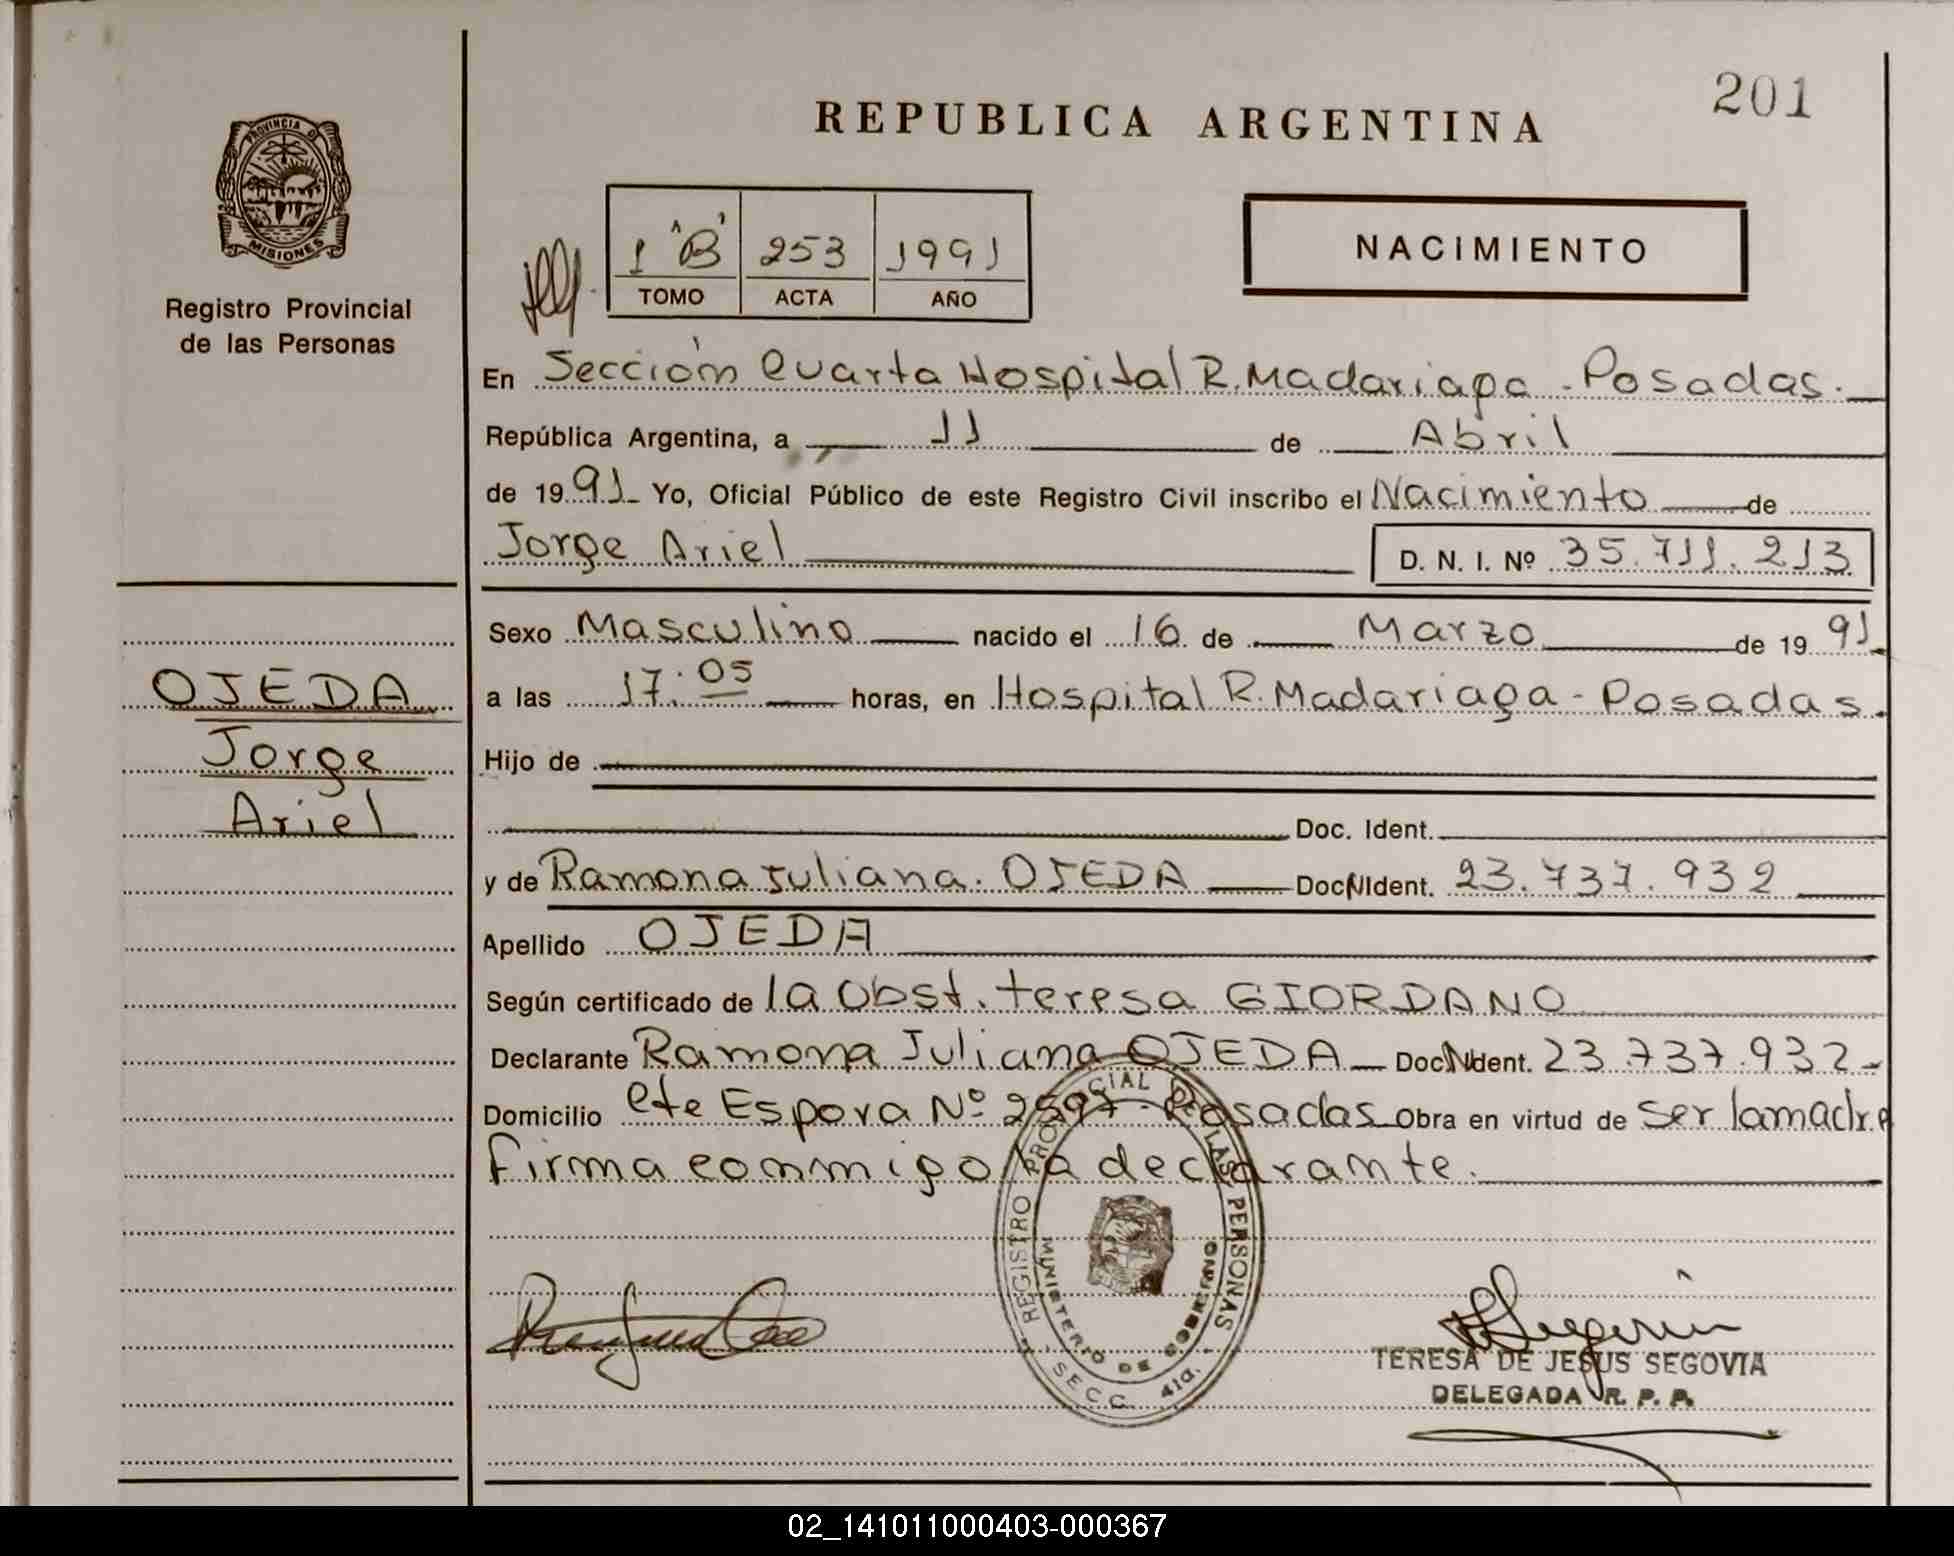 201
REPUBLICA ARGENTINA
PROVINCIA D MISIONES
Registro Provincial
de las Personas
1 "B" 253 1991
TOMO ACTA AÑO
NACIMIENTO
En Sección Cuarta Hospital R. Madariaga - Posadas.
República Argentina, a 11 de Abril
de 1991 Yo, Oficial Público de este Registro Civil inscribo el Nacimiento de
Jorge Ariel D. N. I. Nº 35.711.213
Sexo Masculino nacido el 16 de Marzo de 1991
a las 17:05 horas, en Hospital R. Madariaga - Posadas.
Hijo de
Doc. Ident.
y de Ramona Juliana. OJEDA Doc.N.Ident. 23.737.932
Apellido OJEDA
Según certificado de la Obst. teresa GIORDANO
Declarante Ramona Juliana OJEDA Doc.N.Ident. 23.737.932
Domicilio Cte Espora Nº Posadas Obra en virtud de ser la madre
firma conmigo la declarante.
OJEDA
Jorge
Ariel
REGISTRO PROVINCIAL DE LAS PERSONAS
MINISTERIO DE GOBIERNO
SECC. 4ta.
TERESA DE JESUS SEGOVIA
DELEGADA R. P. P.
02_141011000403-000367